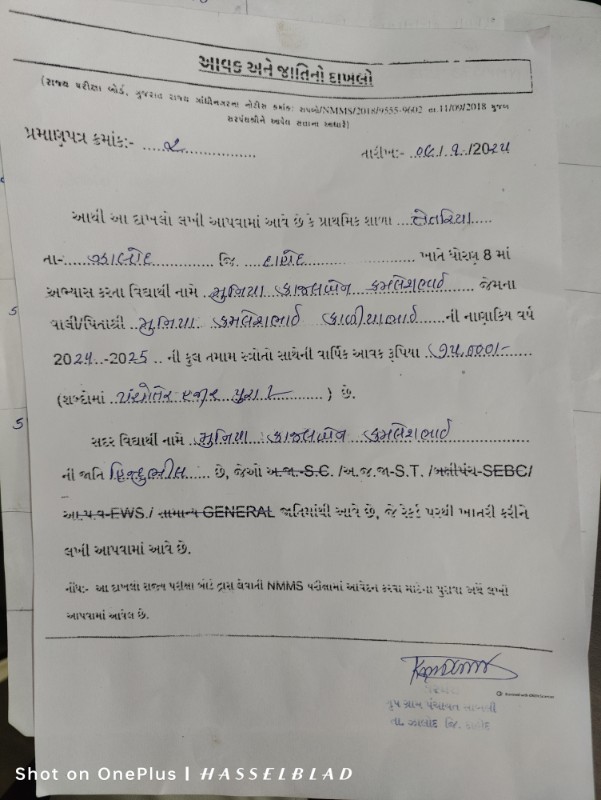 આવક અને જાતિનો દાખલો
(રાજ્ય પરીક્ષા બોર્ડ, ગુજરાત રાજ્ય ગાંધીનગરના નોટીસ ક્રમાંક: રાપબો/NMMS/2018/9555-9602 તા.11/09/2018 મુજબ
સરપંચશ્રીને આપેલ સત્તાના આધારે)
પ્રમાણપત્ર ક્રમાંક:- ....૨................
તારીખ:- ../.../20૨૫
આથી આ દાખલો લખી આપવામાં આવે છે કે પ્રાથમિક શાળા ........
તા-....ઝાલોદ............ જિ. દાહોદ .................. ખાતે ધોરણ 8 માં
અભ્યાસ કરતા વિદ્યાથી નામે ..મુનિયા કાજલબેન કમલેશભાઈ.... જેમના
વાલી/પિતાશ્રી ..મુનિયા કમલેશભાઈ કાળીયાભાઈ....ની નાણાકિય વર્ષ
2024 -2025 .. ની કુલ તમામ સ્ત્રોતો સાથેની વાર્ષિક આવક રૂપિયા .૭૫,૦૦૦/-....
(શબ્દોમાં ..પંચોતેર હજાર પુરા....... ) છે.
સદર વિદ્યાથી નામે ..મુનિયા કાજલબેન કમલેશભાઈ.............
ની જાતિ હિન્દુભીલ..... છે, જેઓ અ.જા.-S.C. /અ.જ.જા-S.T. /બક્ષીપંચ-SEBC/
આ.પ.વ-EWS./ સામાન્ય GENERAL જાતિમાંથી આવે છે, જે રેકર્ડ પરથી ખાતરી કરીને
લખી આપવામાં આવે છે.
નોંધ:- આ દાખલો રાજ્ય પરીક્ષા બોર્ડ દ્વારા લેવાની NMMS પરીક્ષામાં આવેદન કરવા માટેના પુરાવા અર્થે લખી
આપવામાં આવેલ છે.
સરપંચ
ગ્રુપ ગ્રામ પંચાયત
તા. ઝાલોદ જિ. દાહોદ
Shot on OnePlus | HASSELBLAD